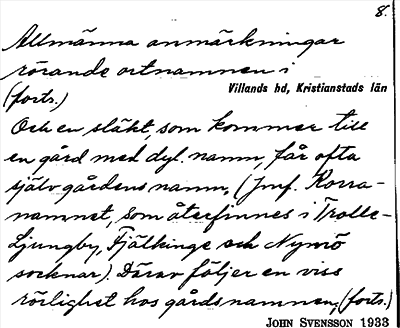 8.
Allmänna anmärkningar
rörande ortnamnen i
(forts.)
Villands hd, Kristianstads län
Och en släkt, som kommer till
en gård med dyl. namn, får ofta
själv gårdens namn. (Jmf. Korra-
namnet, som återfinnes i Trolle-
Ljungby, Fjälkinge och Nymö
socknar). Därav följer en viss
rörlighet hos gårdsnamnen, (forts.)
JOHN SVENSSON 1933